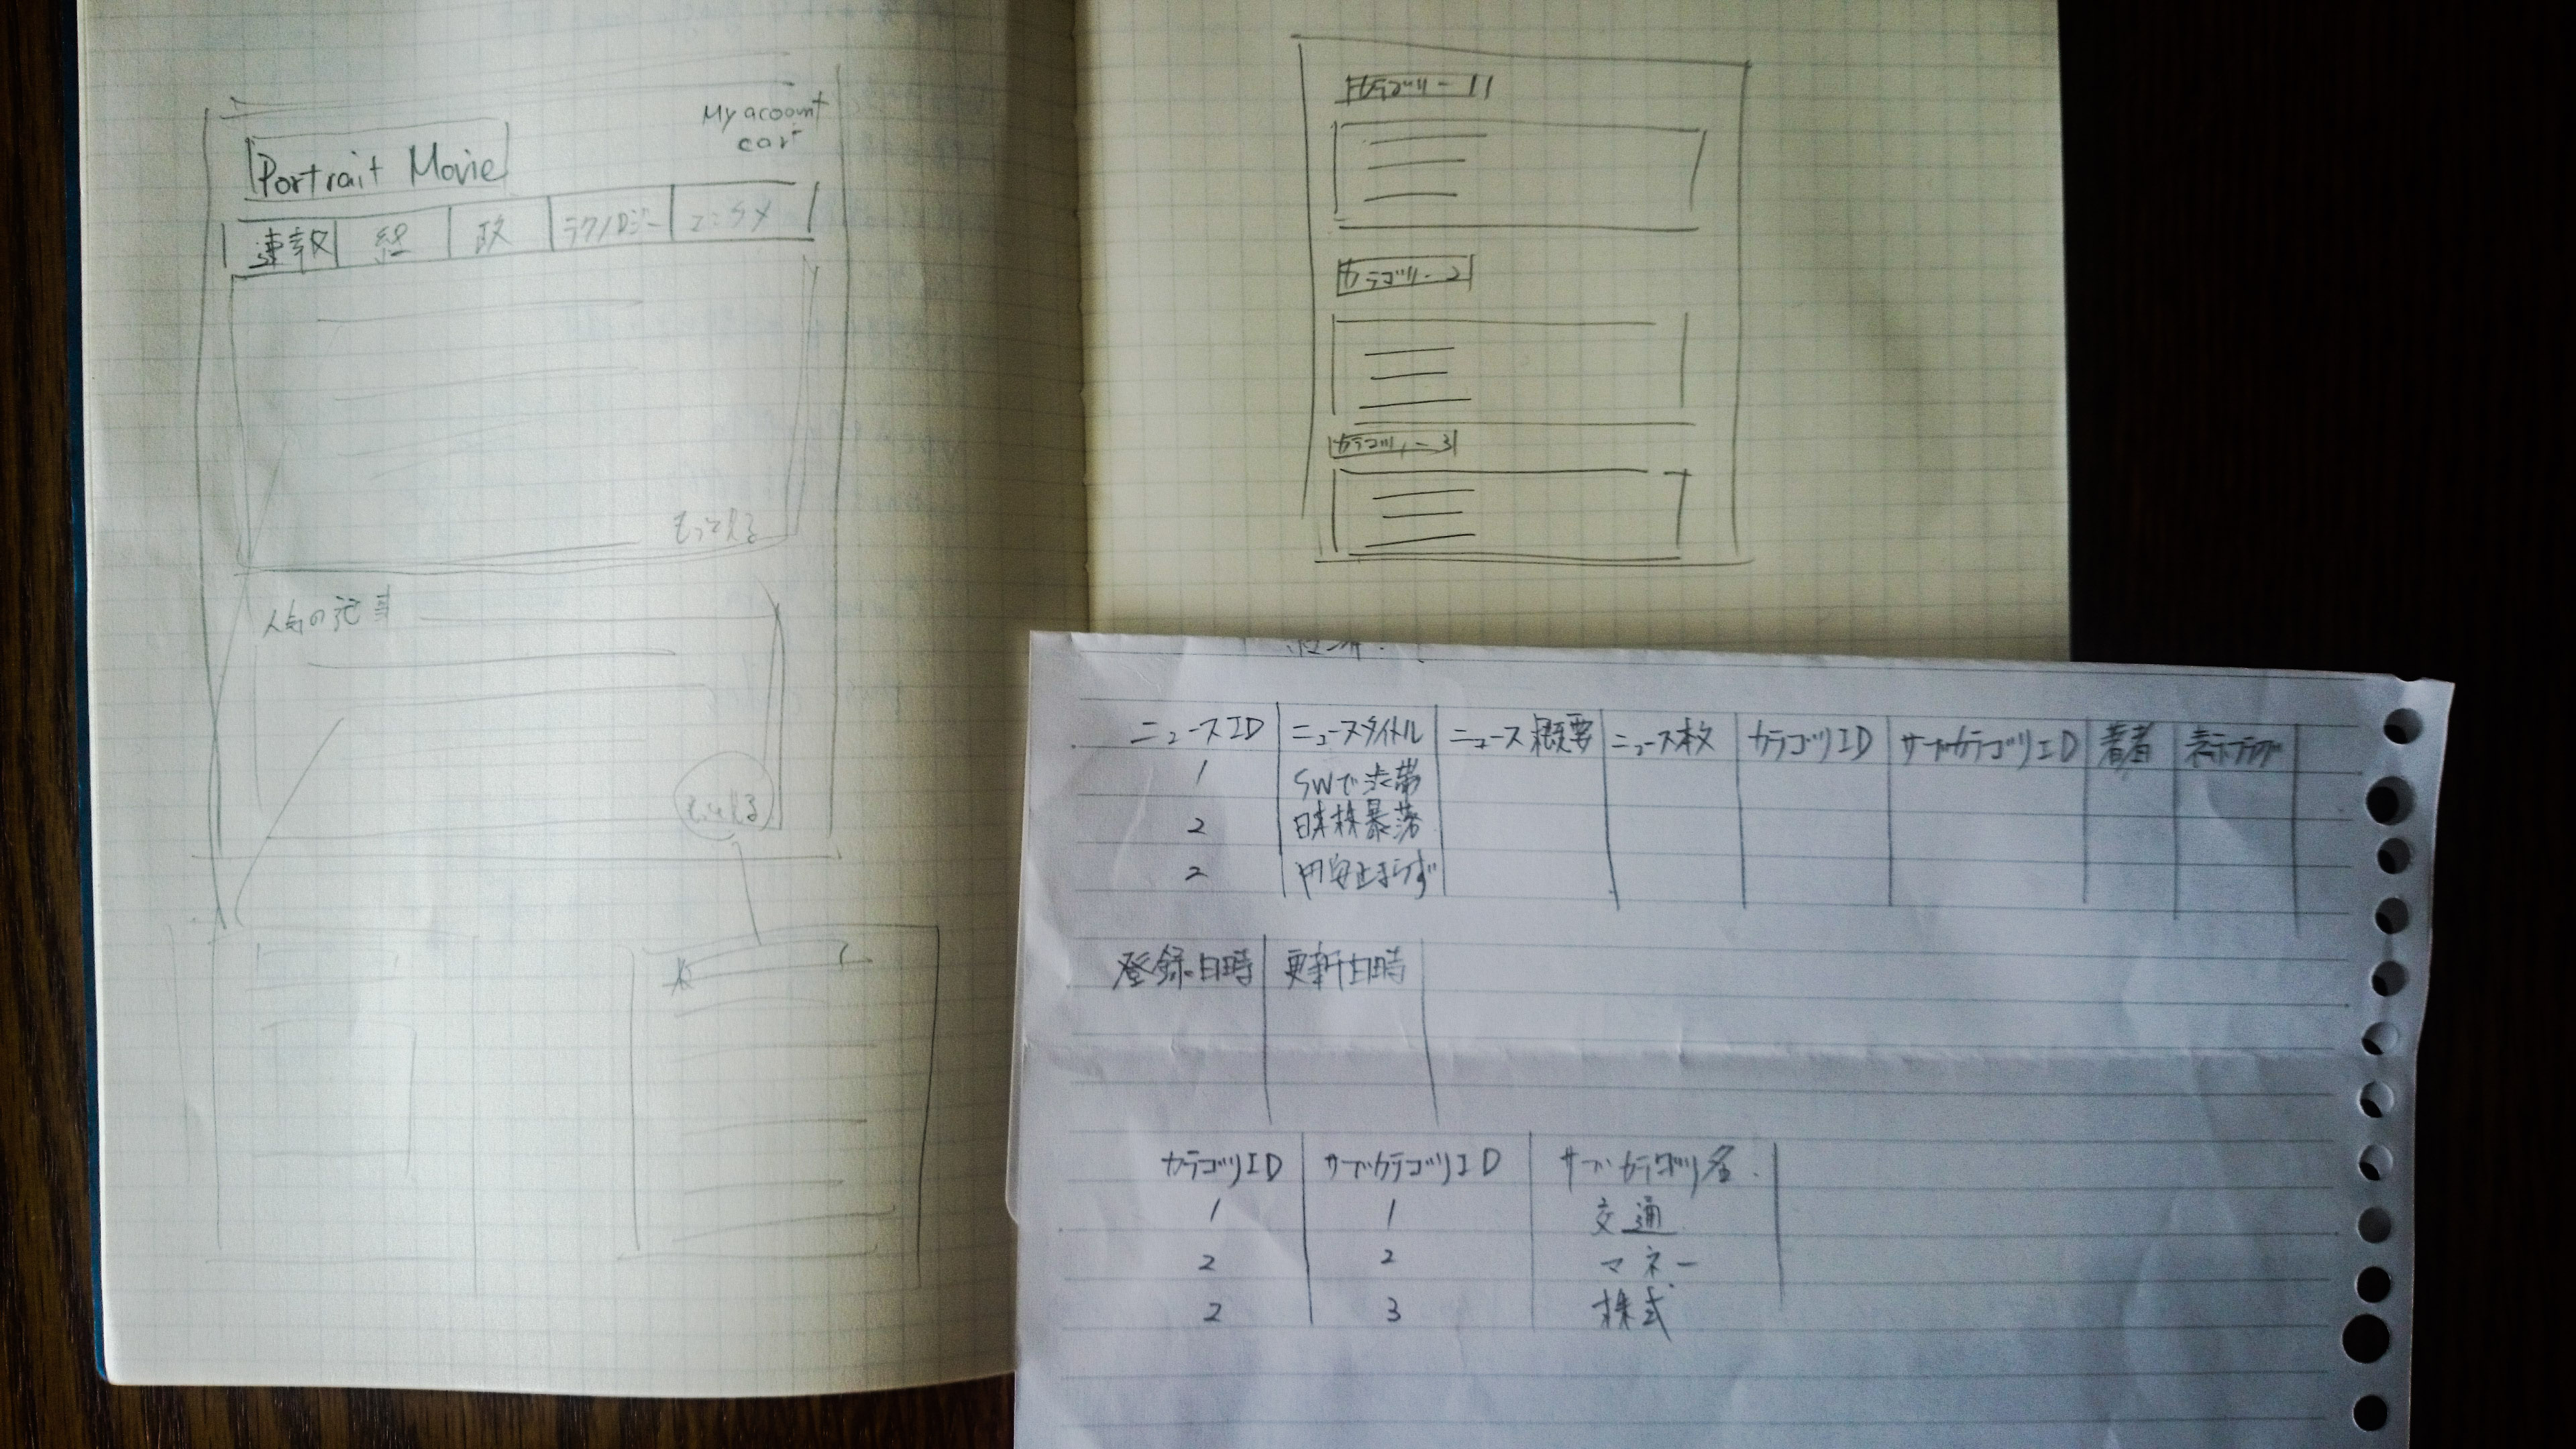 My acoount
cart
Portrait Movie
速報 経 政 テクノロジー エンタメ
もっと見る
人気の記事
もっと見る
カテゴリー1
カテゴリー2
カテゴリー3
ニュースID ニュースタイトル ニュース概要 ニュース本文 カテゴリID サブカテゴリID 著者 表示フラグ
1 SWで渋滞
2 日本株暴落
2 円安止まらず
登録日時 更新日時
カテゴリID サブカテゴリID サブカテゴリ名
1 1 交通
2 2 マネー
2 3 株式